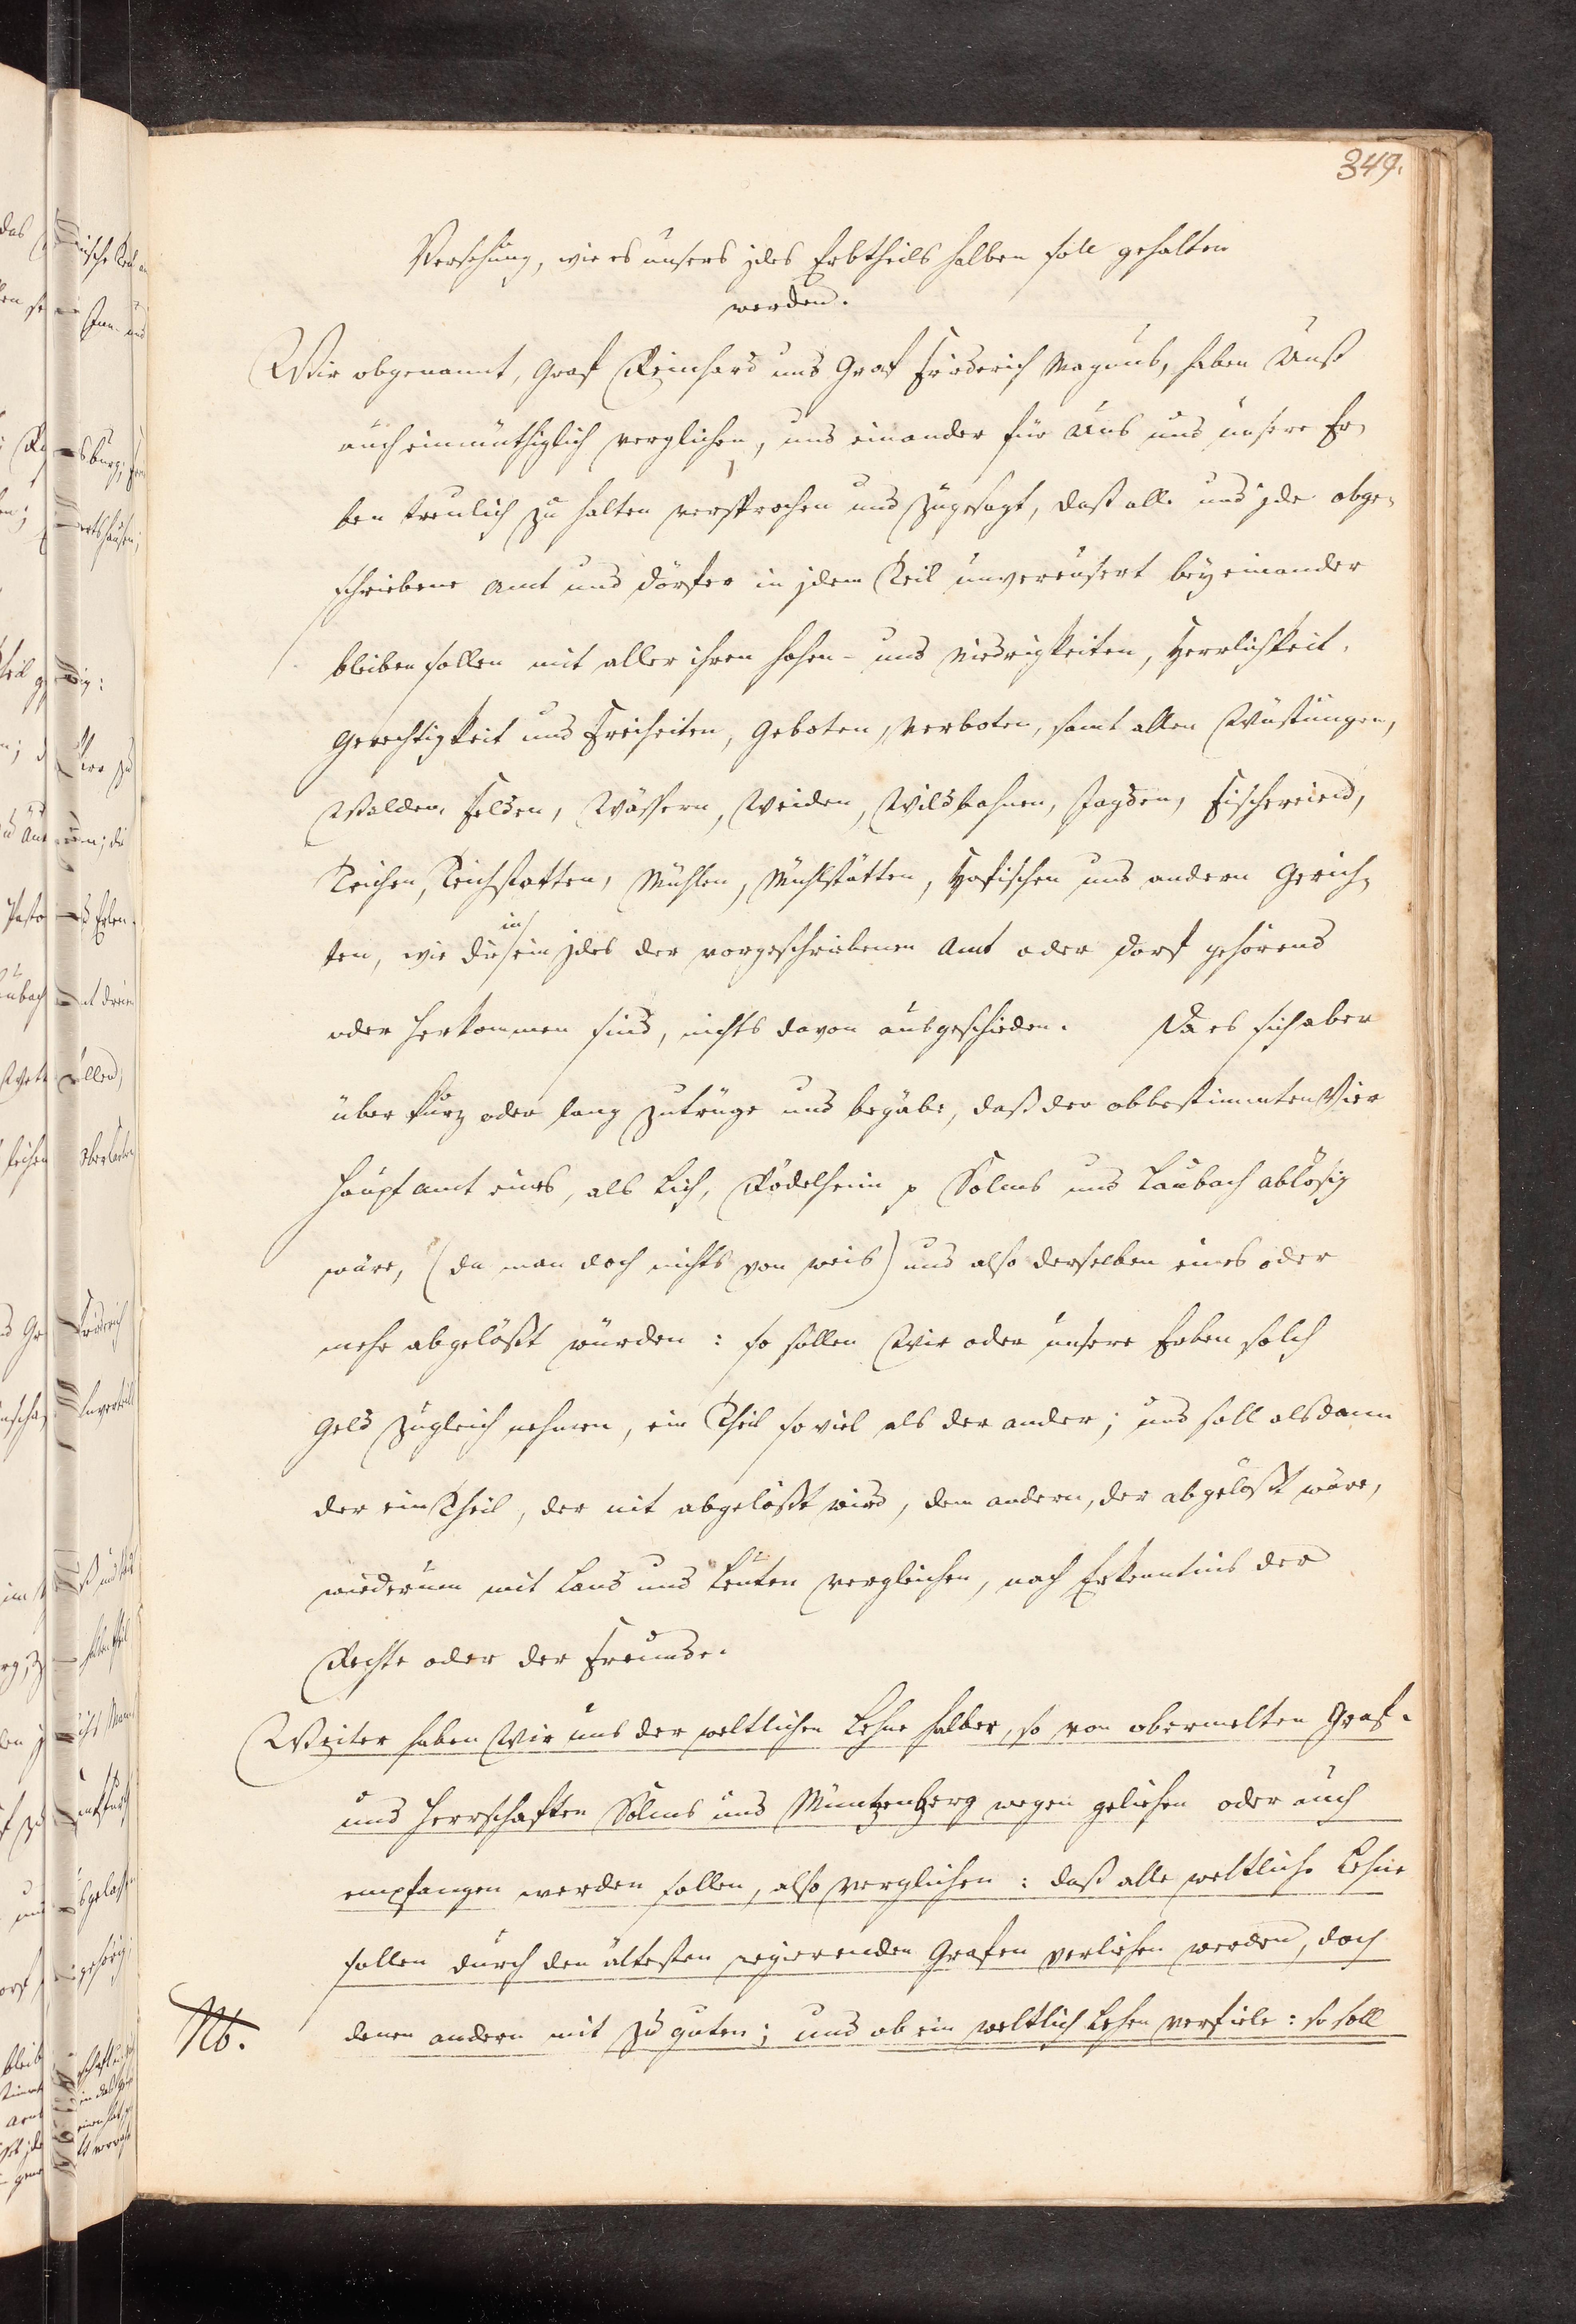 349.
Versehung, wie es unsers jdes Erbtheils halben soll gehalten
werden.
Wir obgenannt, Graf Reinhard und Graf Friderich Magnus, haben Unß
auch einmüthiglich verglichen, und einander für Uns und unsere Er-
ben treulich zu halten versprochen und zugesagt, daß alle und jde obge-
schriebene Amt und Dörfer in jdem Teil unvereusert bey einander
bleiben sollen mit aller ihren Hohen- und Nidrigkeiten, Herrlichkeit,
Gerechtigkeit und Freiheiten, Geboten, Verboten, samt allen Wüstungen,
Walden, Felden, Wässern, Weiden, Wildbahnen, Jagden, Fischereien,
Teichen, Teichstatten, Mühlen, Mühlstätten, Hofischen und andern Gerich-
ten, wie die in ein jdes der vorgeschriebenen Amt oder Dorf gehörend
oder Herkommen sind, nichts davon ausgeschieden. Da es sich aber
über kurz oder lang zutrüge und begäbe, daß der obbestimmten Vier
Hauptamt eines, als Lich, Rödelheim p Solms und Laubach ablösig
wäre, (da man doch nichts von weis) und also derselben eines oder
mehr abgelößt würden: so sollen Wir oder unsere Erben solch
Geld zugleich nehmen, ein Theil so viel als der ander; und soll alsdann
der ein Theil, der nit abgelößt wird, dem andern, der abgelößt wäre,
wiederum mit Land und Leuten vergleichen, nach Erkenntnis der
Rechte oder der Freunde.
Weiter haben Wir uns der weltlichen Lehne halber, so von obermelten Graf-
und Herrschaften Solms und Müntzenberg wegen geliehen oder auch
empfangen werden sollen, also verglichen: daß alle weltliche Lehne
sollen durch den ältesten regierenden Grafen verliehen werden, doch
Nb. denen andern mit zu guten; und ob ein weltlich Lehen verfiele: so soll